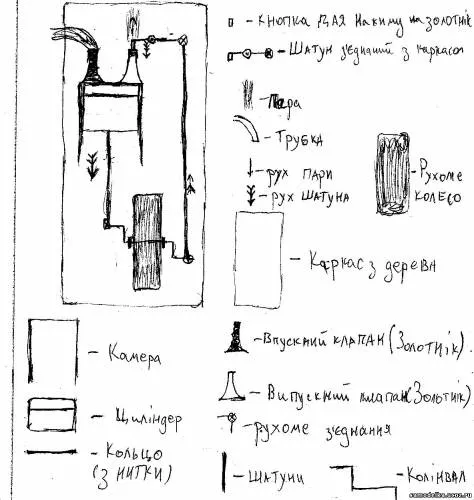 - КНОПКА ДЛЯ НАЖИМУ НА ЗОЛОТНІК
- ШАТУН З'ЄДНАНИЙ З КАРКАСОМ
- Пара
- ТРУБКА
- РУХ ПАРИ
- РУХ ШАТУНА
- РУХОМЕ КОЛЕСО
- Каркас з дерева
- Впускний клапан (Золотнік)
- Камера
- Випускний клапан (Золотнік)
- Циліндер
- рухоме з'єднання
- Кольцо (З НИТКИ)
- Шатуни
- Колінвал
samodelka.ucoz.ru